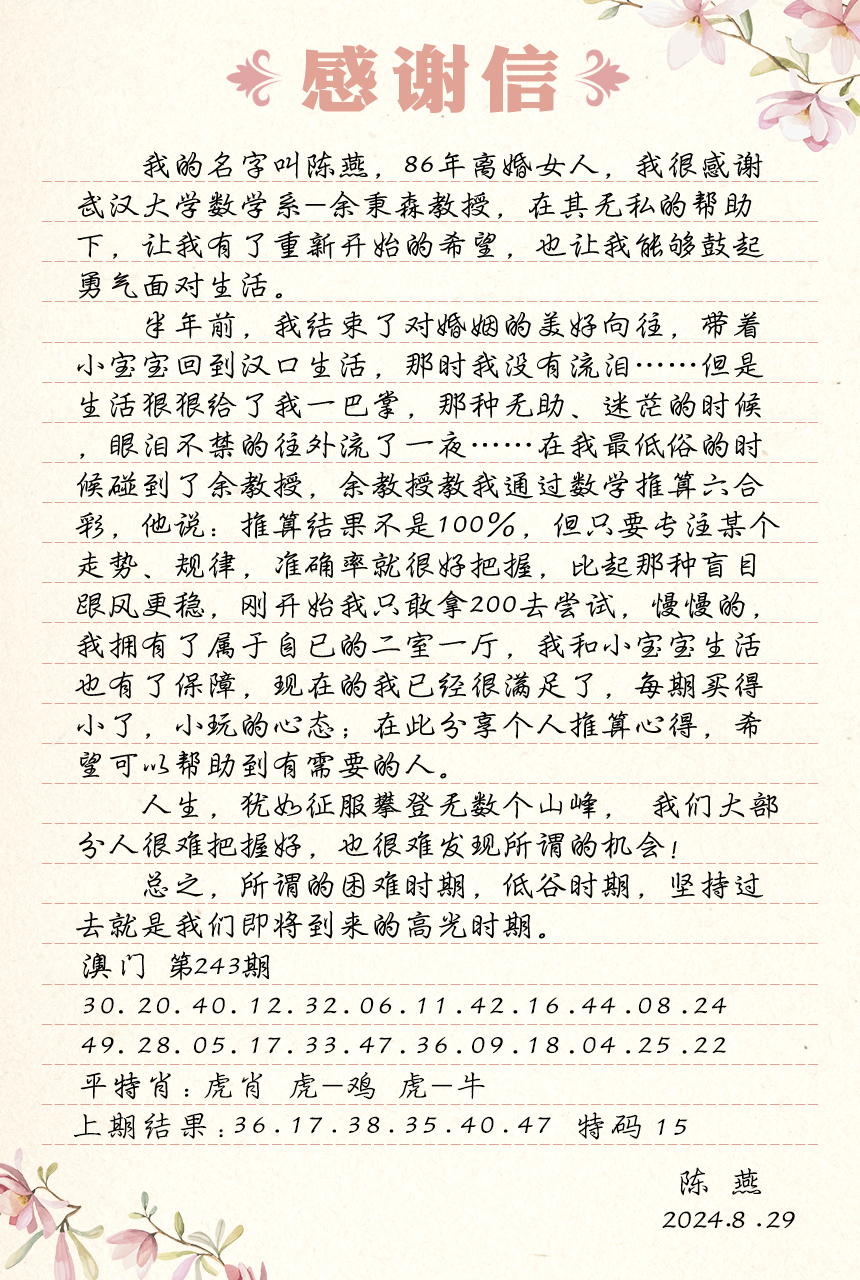 感谢信
我的名字叫陈燕，86年离婚女人，我很感谢
武汉大学数学系—余秉森教授，在其无私的帮助
下，让我有了重新开始的希望，也让我能够鼓起
勇气面对生活。
半年前，我结束了对婚姻的美好向往，带着
小宝宝回到汉口生活，那时我没有流泪……但是
生活狠狠给了我一巴掌，那种无助、迷茫的时候
，眼泪不禁的往外流了一夜……在我最低俗的时
候碰到了余教授，余教授教我通过数学推算六合
彩，他说：推算结果不是100%，但只要专注某个
走势、规律，准确率就很好把握，比起那种盲目
跟风更稳，刚开始我只敢拿200去尝试，慢慢的，
我拥有了属于自已的二室一厅，我和小宝宝生活
也有了保障，现在的我已经很满足了，每期买得
小了，小玩的心态；在此分享个人推算心得，希
望可以帮助到有需要的人。
人生，犹如征服攀登无数个山峰， 我们大部
分人很难把握好，也很难发现所谓的机会！
总之，所谓的困难时期，低谷时期，坚持过
去就是我们即将到来的高光时期。
澳门 第243期
30.20.40.12.32.06.11.42.16.44.08.24
49.28.05.17.33.47.36.09.18.04.25.22
平特肖：虎肖 虎—鸡 虎—牛
上期结果：36.17.38.35.40.47 特码 15
陈 燕
2024.8.29